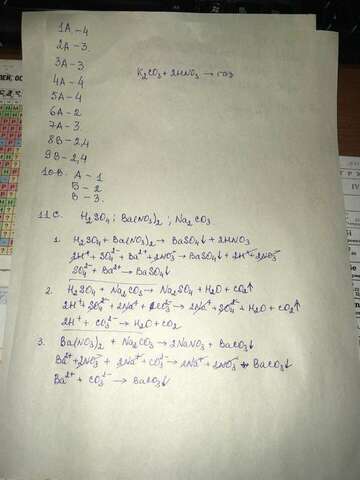 1A - 4
2A - 3
3A - 3
4A - 4
5A - 4
6A - 2
7A - 3
8B - 2,4
9B - 2,4
10.B. A - 1
Б - 2
В - 3.
K₂CO₃ + 2HNO₃ → газ
11.C. H₂SO₄; Ba(NO₃)₂; Na₂CO₃.
1. H₂SO₄ + Ba(NO₃)₂ → BaSO₄↓ + 2HNO₃
2H⁺ + SO₄²⁻ + Ba²⁺ + 2NO₃⁻ → BaSO₄↓ + 2H⁺ + 2NO₃⁻
SO₄²⁻ + Ba²⁺ → BaSO₄↓
2. H₂SO₄ + Na₂CO₃ → Na₂SO₄ + H₂O + CO₂↑
2H⁺ + SO₄²⁻ + 2Na⁺ + CO₃²⁻ → 2Na⁺ + SO₄²⁻ + H₂O + CO₂↑
2H⁺ + CO₃²⁻ → H₂O + CO₂
3. Ba(NO₃)₂ + Na₂CO₃ → 2NaNO₃ + BaCO₃↓
Ba²⁺ + 2NO₃⁻ + 2Na⁺ + CO₃²⁻ → 2Na⁺ + 2NO₃⁻ + BaCO₃↓
Ba²⁺ + CO₃²⁻ → BaCO₃↓